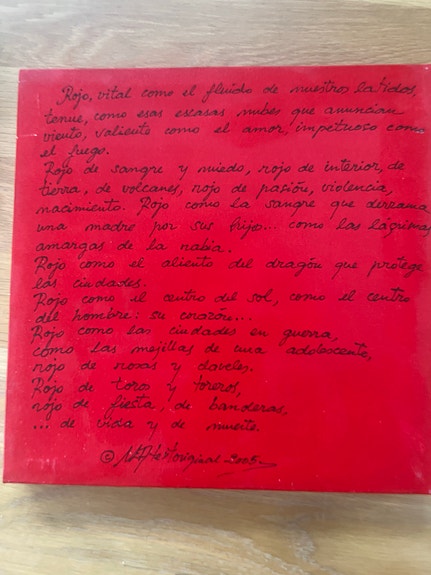 Rojo, vital como el fluído de nuestros latidos,
tenue, como esas escasas nubes que anuncian
viento, valiente como el amor, impetuoso como
el fuego.
Rojo de sangre y miedo, rojo de interior, de
tierra, de volcanes, rojo de pasión, violencia,
nacimiento. Rojo como la sangre que derrama
una madre por sus hijo... como las lágrimas
amargas de la rabia.
Rojo como el aliento del dragón que protege
las ciudades.
Rojo como el centro del sol, como el centro
del hombre: su corazón...
Rojo como las ciudades en guerra,
como las mejillas de una adolescente,
rojo de rosas y claveles.
Rojo de toros y toreros,
rojo de fiesta, de banderas,
... de vida y de muerte.
© original 2005